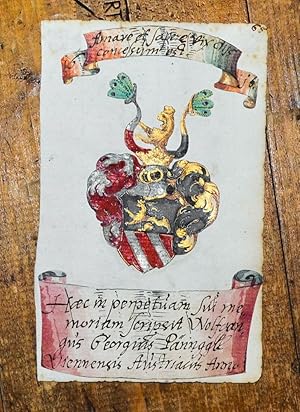 Amare et sapere vix Deo
concessum est
Hæc in perpetuam sui me
moriam scripsit Wolfgan
gus Georgius
Viennensis Austriacus